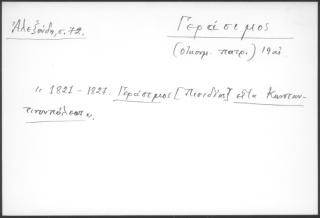 Ἀλεξούδη, σ. 72.
Γεράσιμος
(Οἰκουμ. πατρ.) 19αι
1. 1821 - 1827. Γεράσιμος [Πισιδίας] εἶτα Κωνσταν-
τινουπόλεως.